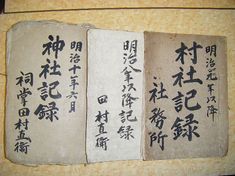 明治元年以降
村社記録
社務所
明治八年以降記録
田村直衛
明治十年六月
神社記録
祠掌田村直衛